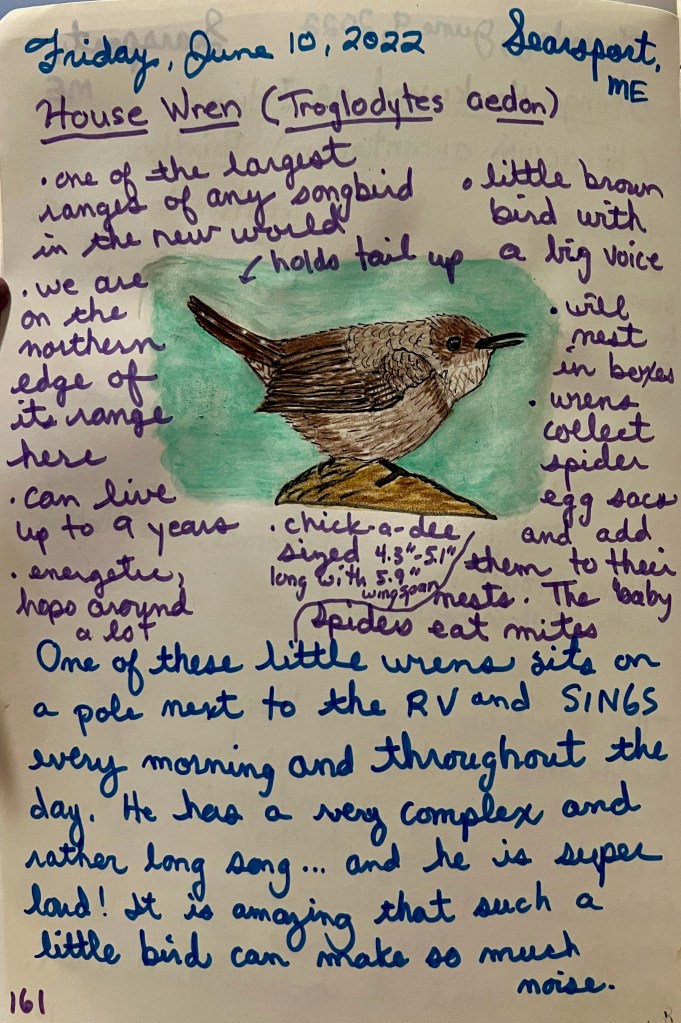 Friday, June 10, 2022 Searsport, ME
House Wren (Troglodytes aedon)
• one of the largest
ranges of any songbird
in the new world
• little brown
bird with
a big voice
↙ holds tail up
• we are
on the
northern
edge of
its range
here
• can live
up to 9 years
• energetic,
hops around
a lot
• will
nest
in boxes
• wrens
collect
spider
egg sacs
and add
them to their
nests. The baby
spiders eat mites
• chick-a-dee
sized 4.3"-5.1"
long with 5.9"
wingspan
One of these little wrens sits on
a pole next to the RV and SINGS
every morning and throughout the
day. He has a very complex and
rather long song... and he is super
loud! It is amazing that such a
little bird can make so much
noise.
161